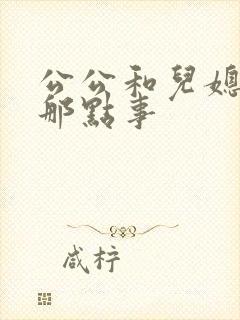 公公和兒媳
那點事
咸柠